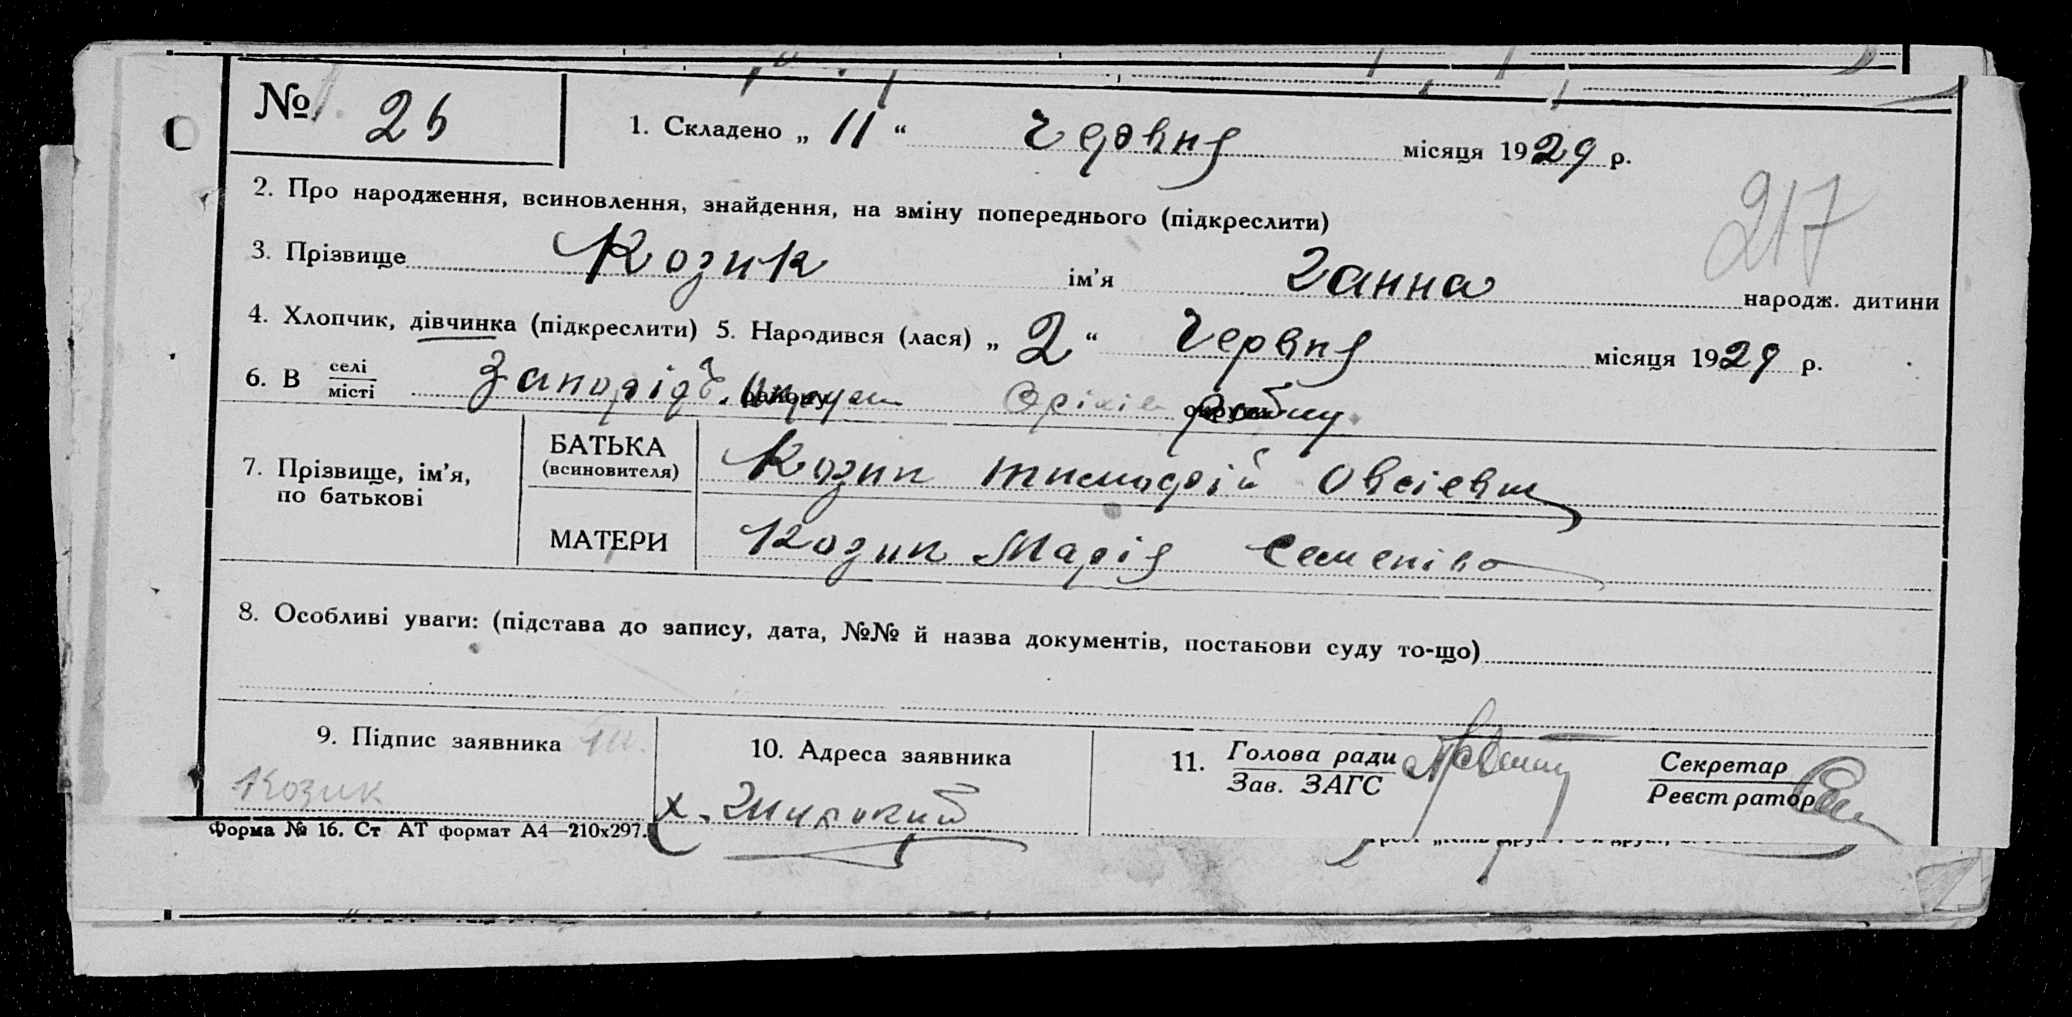 № 26
1. Складено „ 11 “ Червня місяця 1929 р.
2. Про народження, всиновлення, знайдення, на зміну попереднього (підкреслити)
217
3. Прізвище Козик ім’я Ганна народж. дитини
4. Хлопчик, дівчинка (підкреслити) 5. Народився (лася) „ 2 “ Червня місяця 1929 р.
6. В селі місті району Оріхів округи
7. Прізвище, ім’я, по батькові
БАТЬКА (всиновителя) Козик Тимофій Овсієвич
МАТЕРИ Козик Марія Семенівна
8. Особливі уваги: (підстава до запису, дата, №№ й назва документів, постанови суду то-що)
9. Підпис заявника
Козик
10. Адреса заявника
х.
11. Голова ради
Зав. ЗАГС
Секретар
Реєстратор
Форма № 16. Ст АТ формат А4—210х297.